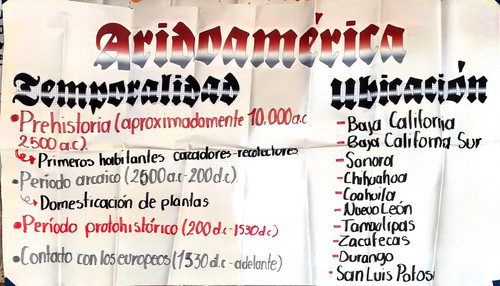 Aridoamérica
Temporalidad
•Prehistoria (aproximadamente 10.000 a.c
2500 a.c).
↳Primeros habitantes cazadores-recolectores
•Período arcaico (2500 a.c-200 d.c).
↳Domesticación de plantas
•Período protohistórico (200 d.c-1530 d.c)
•Contacto con los europeos (1530 d.c-adelante)
Ubicación
-Baja California
-Baja California Sur
-Sonora
-Chihuahua
-Coahuila
-Nuevo León
-Tamaulipas
-Zacatecas
-Durango
-San Luis Potosí